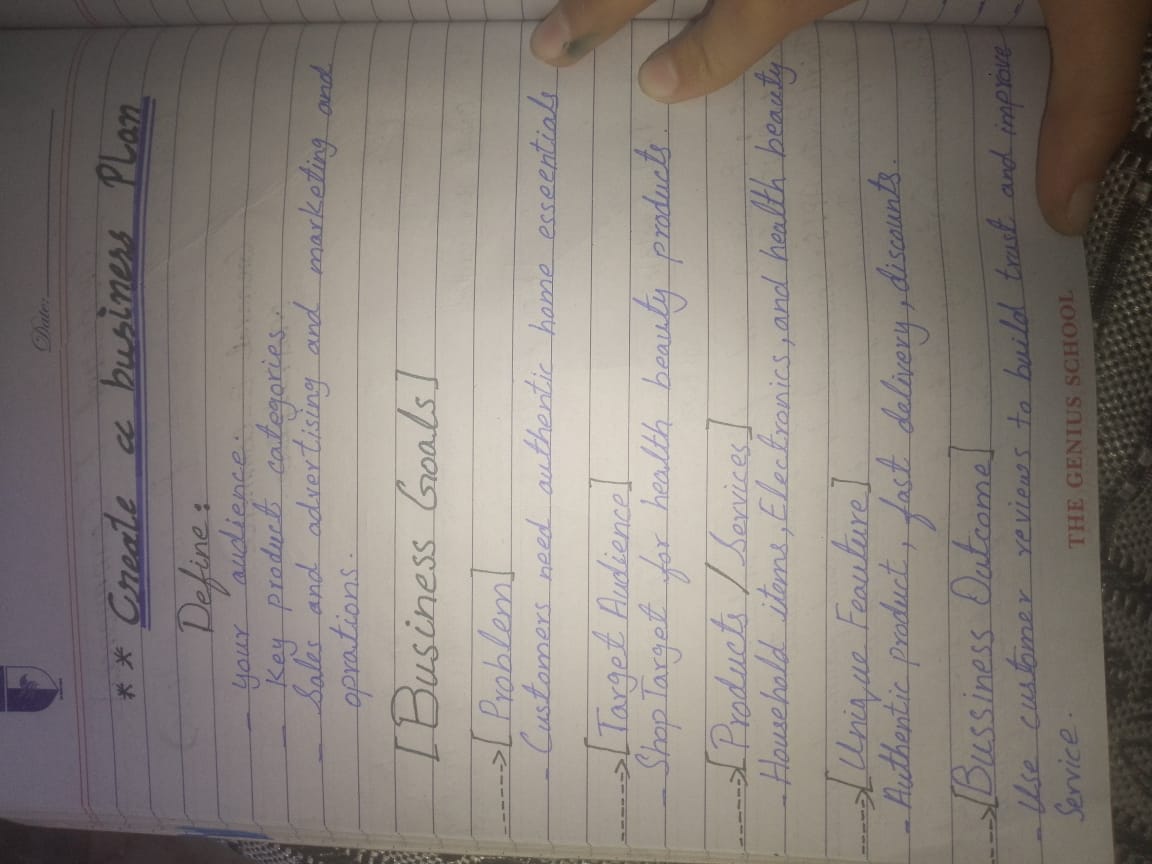 Date:
** Create a business Plan
Define:
- your audience.
- Key product categories.
- Sales and advertising and marketing and
oprations.
[Business Goals]
----->[Problem]
- Customers need authentic home esseentials
----->[Target Audience]
- Shop Target for health beauty products.
----->[Products / Services]
- Household items, Electronics, and health beauty
---->[Unique Feauture]
- Authentic product, fast delivery, discounts.
--->[Bussiness Outcome]
- Use customer reviews to build trust and improve
Service.
THE GENIUS SCHOOL